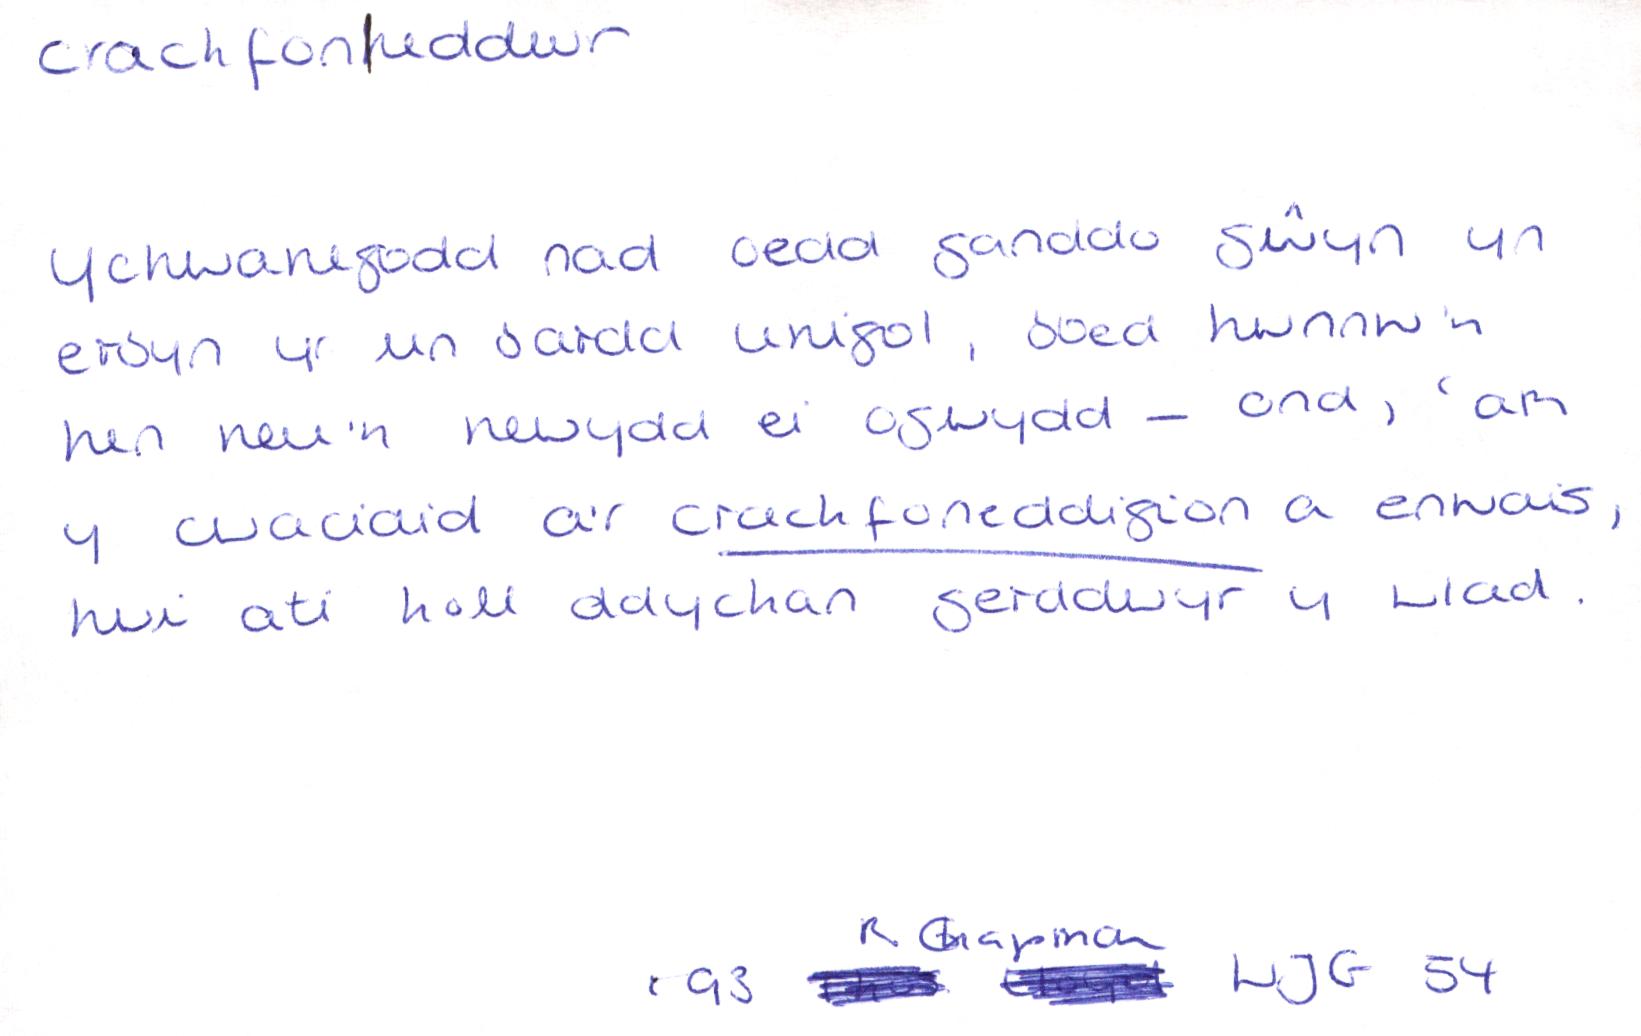 crachfonheddwr
Ychwanegodd nad oedd ganddo gŵyn yn
erbyn yr un bardd unigol, boed hwnnw'n
hen neu'n newydd ei ogwydd – ond, 'am
y cwaciaid a'r crachfoneddigion a enwais,
hwi ati holl ddychan gerddwyr y wlad.
R Chapman
'93 WJG 54